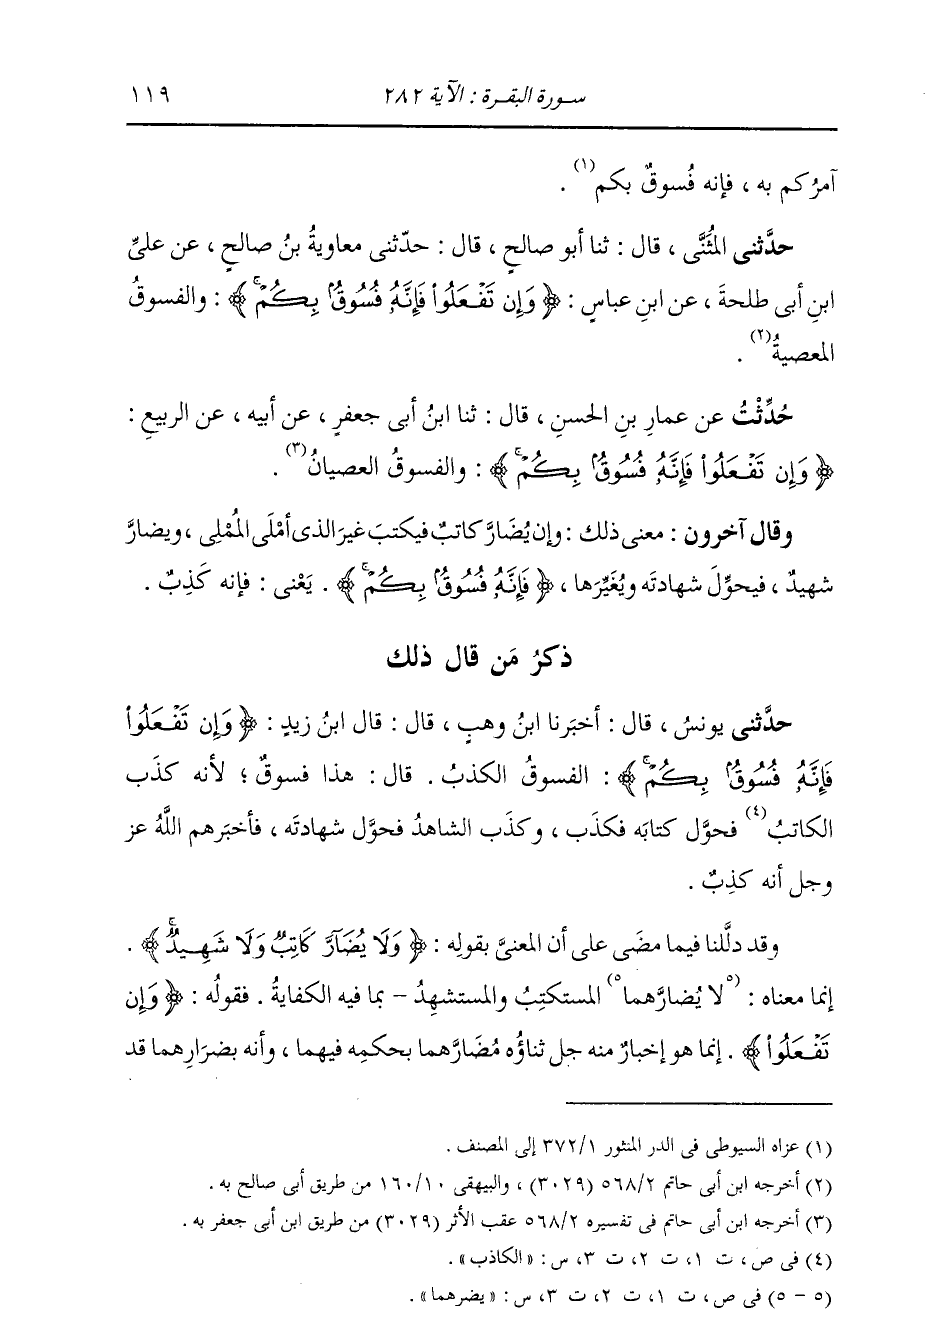 سورة البقرة : الآية ٢٨٢ ١١٩
آمرُكم به ، فإنه فُسوقٌ بكم(١) .
حدَّثني المُثَنَّى ، قال : ثنا أبو صالحٍ ، قال : حدّثنى معاويةُ بنُ صالحٍ ، عن علىِّ
ابنِ أبى طلحةَ ، عن ابنِ عباسٍ : ﴿ وَإِن تَفْعَلُوا۟ فَإِنَّهُۥ فُسُوقٌۢ بِكُمْ ۗ ﴾ : والفسوقُ
المعصيةُ(٢) .
حُدِّثْتُ عن عمارِ بنِ الحسنِ ، قال : ثنا ابنُ أبى جعفرٍ ، عن أبيه ، عن الربيعِ :
﴿ وَإِن تَفْعَلُوا۟ فَإِنَّهُۥ فُسُوقٌۢ بِكُمْ ۗ ﴾ : والفسوقُ العصيانُ(٣) .
وقال آخرون : معنى ذلك : وإن يُضَارَّ كاتبٌ فيكتبَ غيرَ الذى أمْلَى المُمْلِى ، ويضارَّ
شهيدٌ ، فيحوِّلَ شهادتَه ويُغَيِّرَها ، ﴿ فَإِنَّهُۥ فُسُوقٌۢ بِكُمْ ۗ ﴾ . يَعْنى : فإنه كَذِبٌ .
ذكرُ مَن قال ذلك
حدَّثنى يونسُ ، قال : أخبَرنا ابنُ وهبٍ ، قال : قال ابنُ زيدٍ : ﴿ وَإِن تَفْعَلُوا۟
فَإِنَّهُۥ فُسُوقٌۢ بِكُمْ ۗ ﴾ : الفسوقُ الكذبُ . قال : هذا فسوقٌ ؛ لأنه كذَب
الكاتبُ(٤) فحوَّل كتابَه فكذَب ، وكذَب الشاهدُ فحوَّل شهادتَه ، فأخبَرهم اللَّهُ عز
وجل أنه كذِبٌ .
وقد دلَّلنا فيما مضَى على أن المعنىَّ بقولِه : ﴿ وَلَا يُضَآرَّ كَاتِبٌ وَلَا شَهِيدٌ ۚ ﴾ .
إنما معناه : (٥لا يُضارَّهما٥) المستكتِبُ والمستشهِدُ – بما فيه الكفايةُ . فقولُه : ﴿ وَإِن
تَفْعَلُوا۟ ﴾ . إنما هو إخبارٌ منه جل ثناؤُه مُضَارَّهما بحكمِه فيهما ، وأنه بضرَارِهما قد
(١) عزاه السيوطى فى الدر المنثور ٣٧٢/١ إلى المصنف .
(٢) أخرجه ابن أبى حاتم ٥٦٨/٢ (٣٠٢٩) ، والبيهقى ١٦٠/١٠ من طريق أبى صالح به .
(٣) أخرجه ابن أبى حاتم فى تفسيره ٥٦٨/٢ عقب الأثر (٣٠٢٩) من طريق ابن أبى جعفر به .
(٤) فى ص ، ت ١، ت ٢، ت ٣، س : «الكاذب» .
(٥ – ٥) فى ص ، ت ١، ت ٢، ت ٣، س : «يضرهما» .